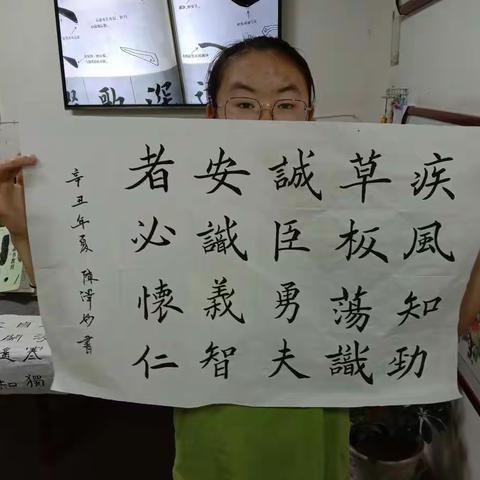 疾風知勁
草板蕩識
誠臣勇夫
安識義智
者必懷仁
辛丑年夏 陳澤書
深
知獨